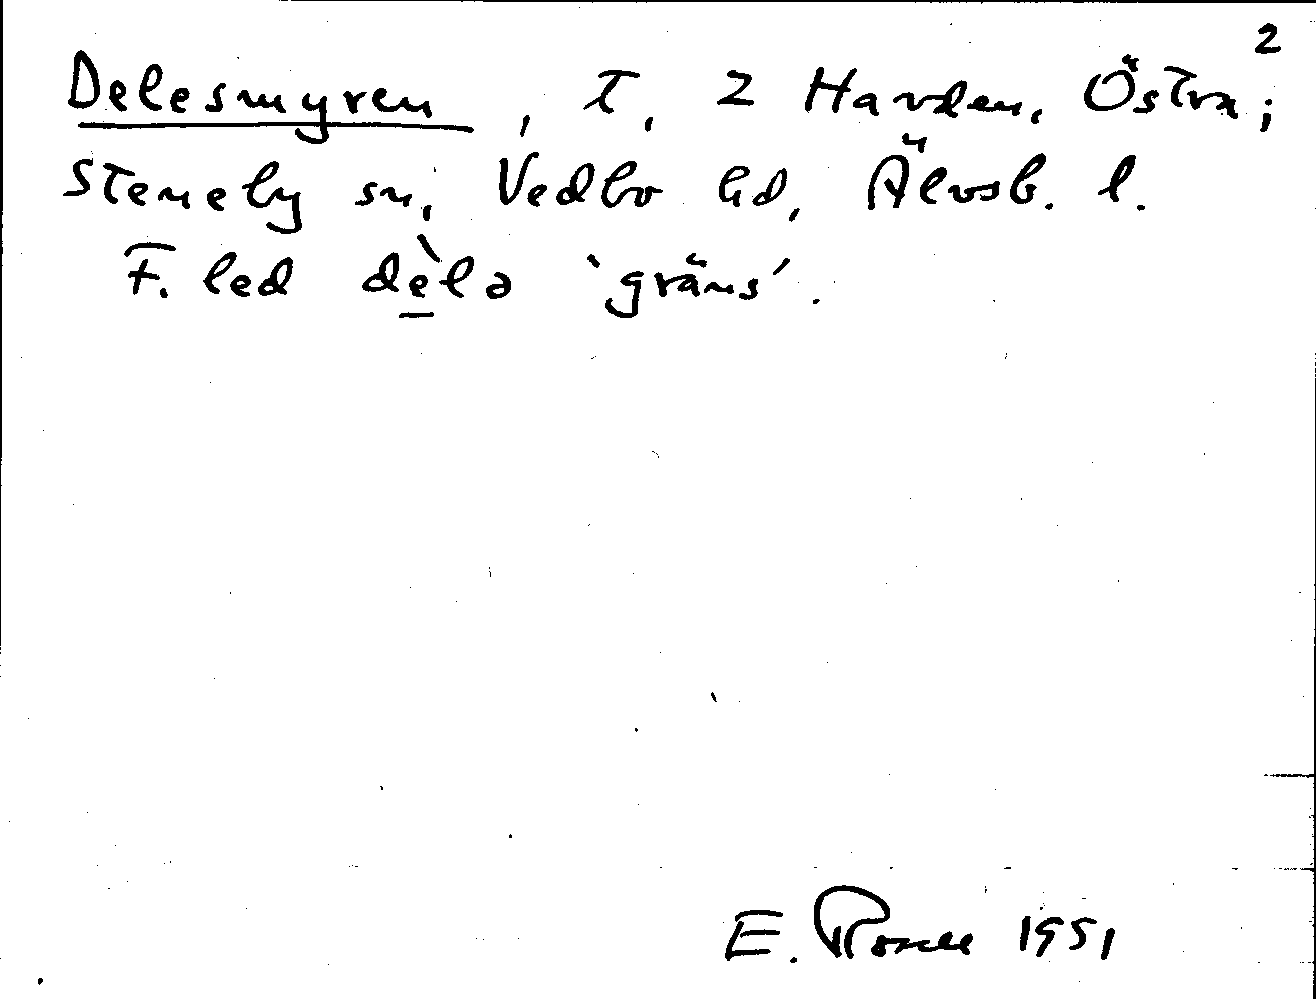 2
Delesmyren, T, 2 Havden, Östra;
Steneby sn, Vedbo hd, Älvsb. l.
F. led dè̱lə ‘gräns’.
E. 1951